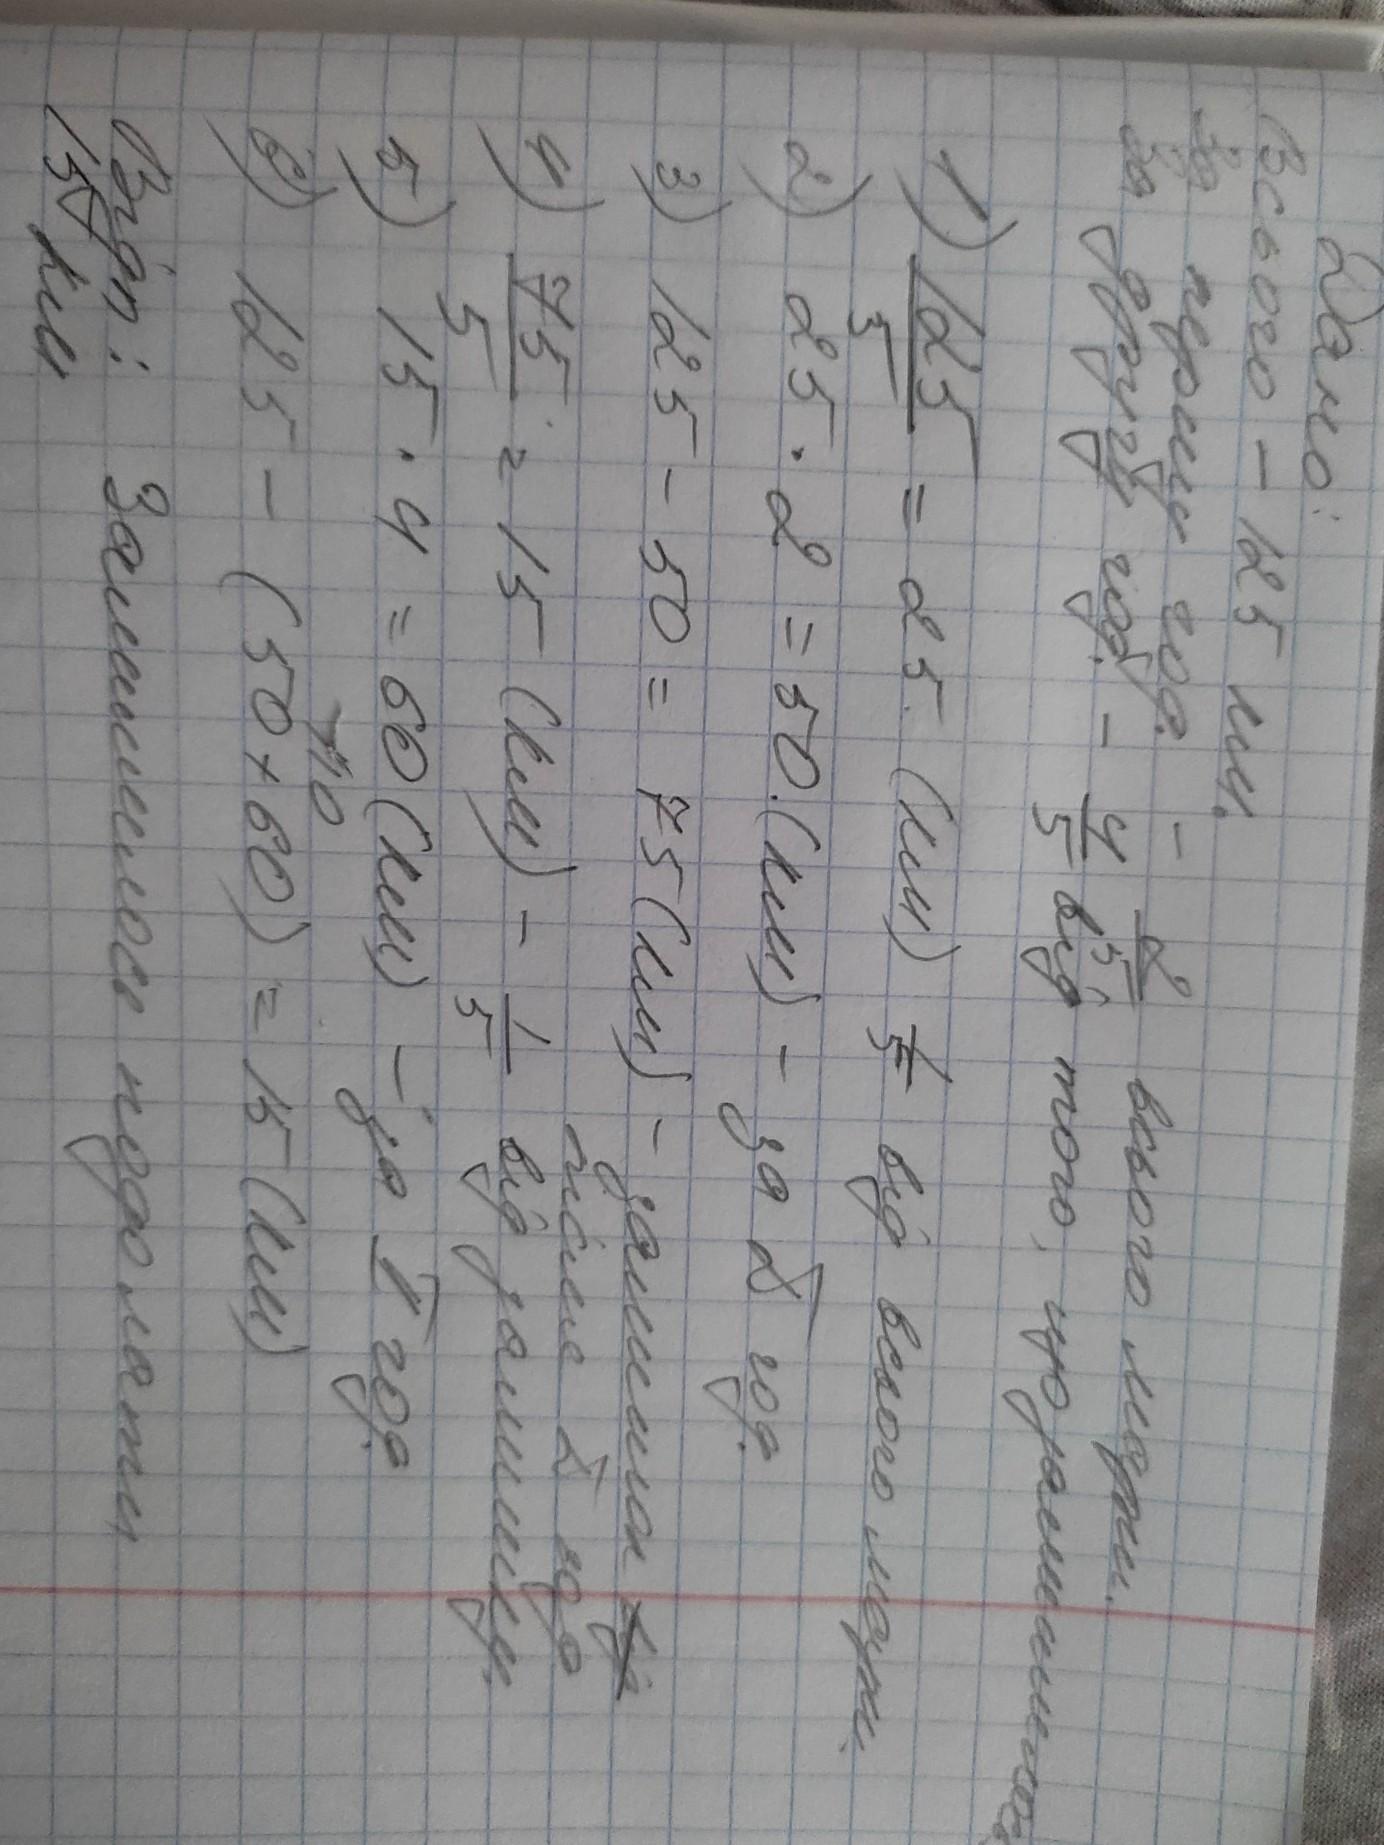 Дано:
Всього - 125 км.
За першу год. - 2/5 всього шляху.
За другу год. - 4/5 від того, що залишилось
1) 125/5 = 25 (км) 1/5 від всього шляху.
2) 25 · 2 = 50 (км) - за I год.
3) 125 - 50 = 75 (км) - залишилось
після I год
4) 75/5 = 15 (км) - 1/5 від залишку.
5) 15 · 4 = 60 (км) - за II год.
110
6) 125 - (50 + 60) = 15 (км)
Відп: Залишилось подолати
15 км